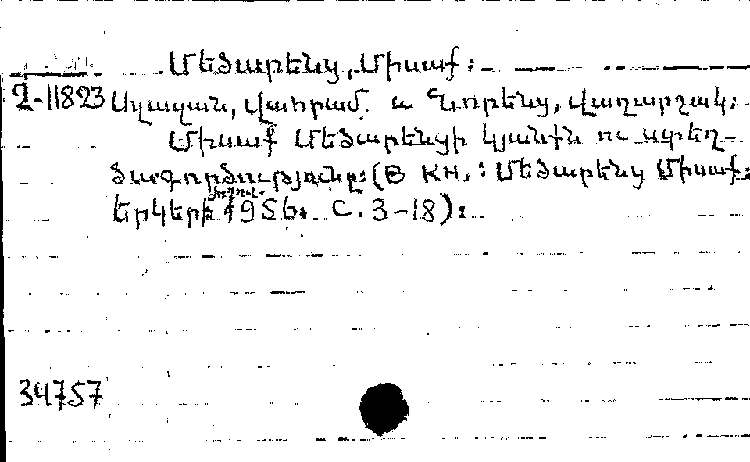 Մեծարենց, Միսաք:
Զ-11823 Ալազան, Վահրամ. և Նորենց, Վաղարշակ:
Միսաք Մեծարենցի կյանքն ու ստեղ-
ծագործությունը: (В кн.: Մեծարենց Միսաք:
Երկերի ժողով. 1956. С. 3-18):
34757